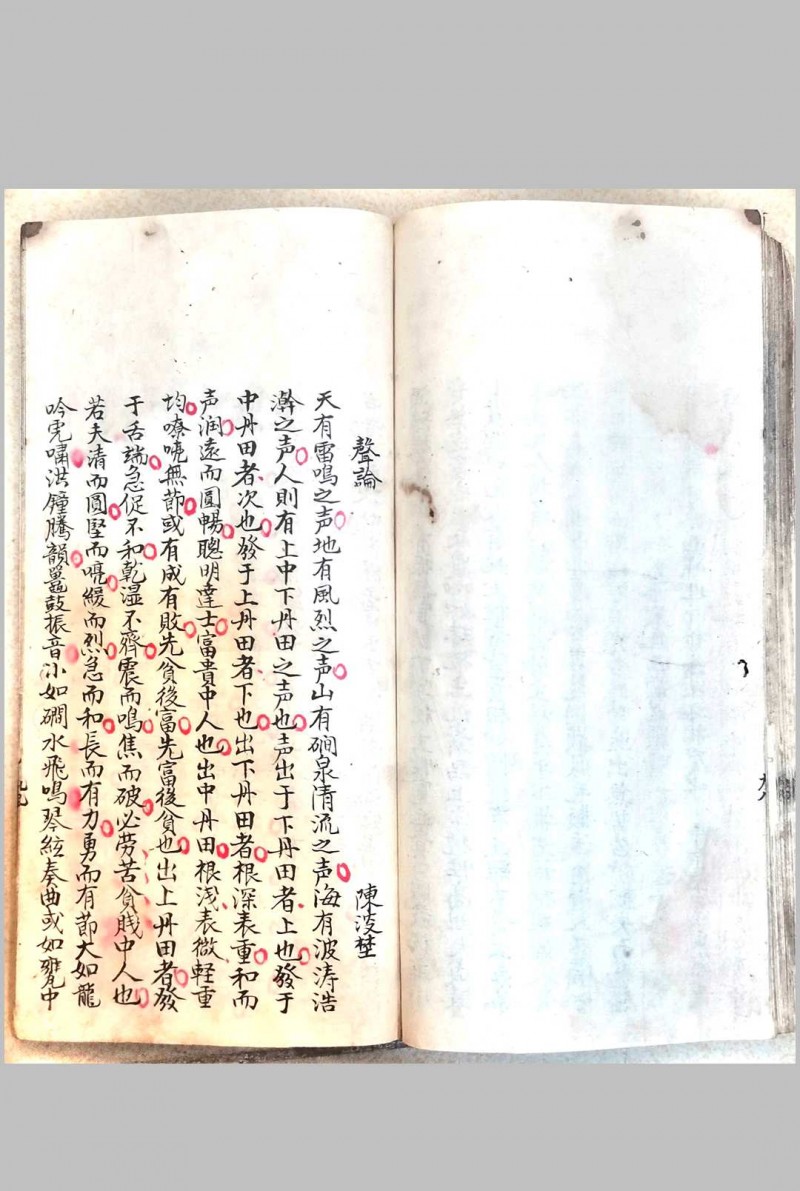 聲論
陳
天有雷鳴之声地有風烈之声山有磵泉清流之声海有波涛浩
澣之声人則有上中下丹田之声也声出于下丹田者上也發于
中丹田者次也發于上丹田者下也出下丹田者根深表重和而
声润遠而圓暢聰明達士富貴中人也出中丹田根浅表微軽重
均嘹喨無節或有成有敗先貧後富先富後貧也出上丹田者發
于舌端急促不和乾湿不齊震而鳴焦而破必劳苦貧賎中人也
若夫清而圓堅而喨緩而烈急而和長而有力勇而有節大如龍
吟虎嘯洪鐘騰韻鼉鼓振音小如磵水飛鳴琴絃奏曲或如甕中
九九
九八